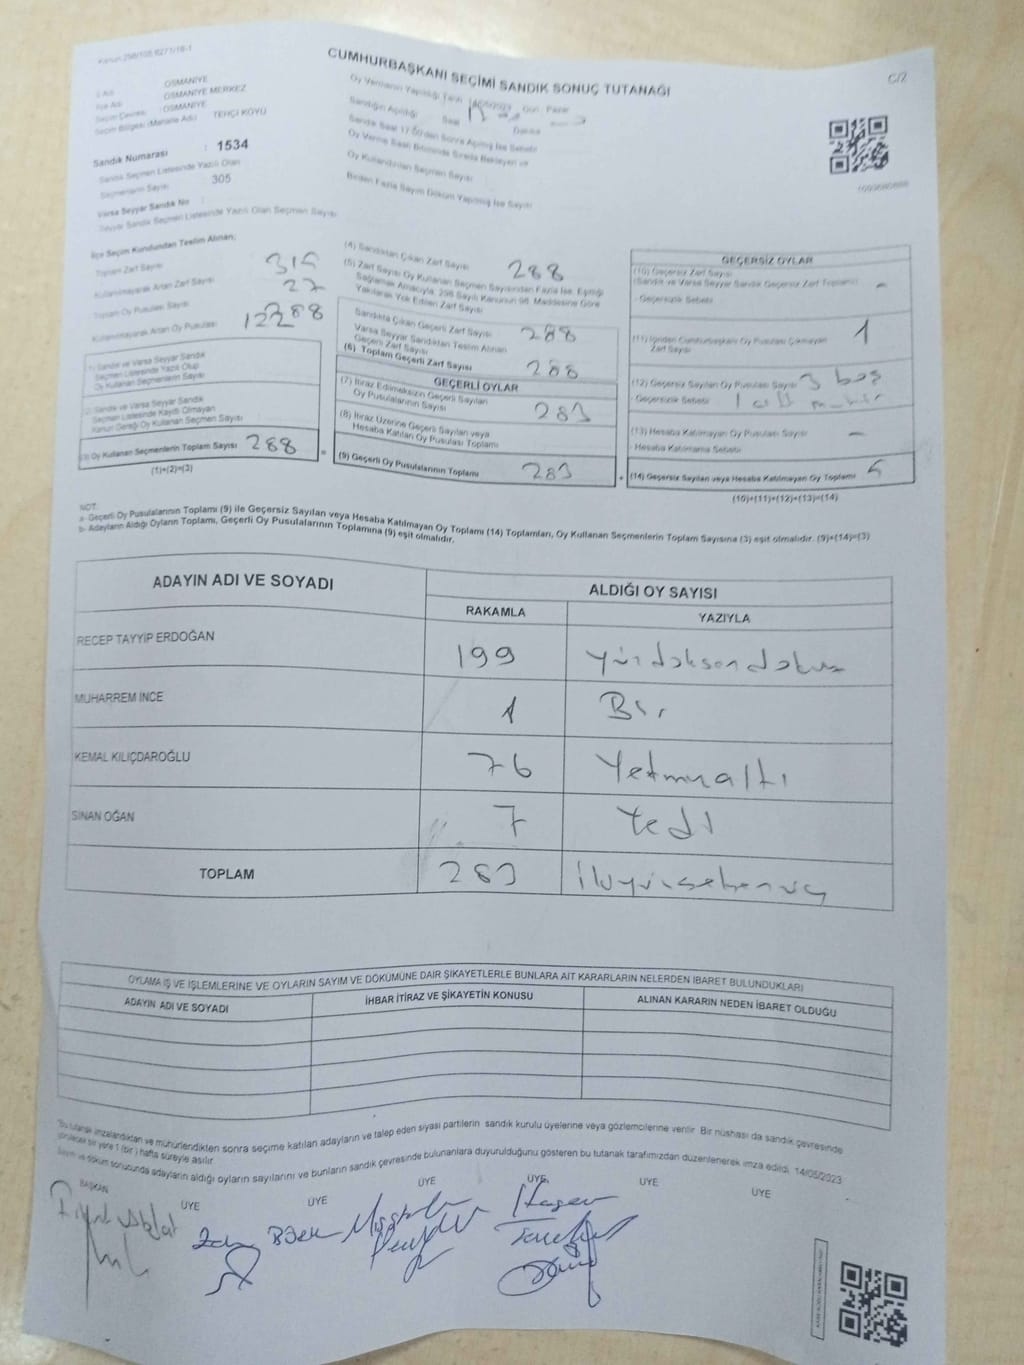 Kanun 298/105, 6271/18-1
CUMHURBAŞKANI SEÇİMİ SANDIK SONUÇ TUTANAĞI
C/2
İl Adı OSMANİYE
İlçe Adı OSMANİYE MERKEZ
Seçim Çevresi : OSMANİYE
Seçim Bölgesi (Mahalle Adı) TEHÇİ KÖYÜ
Sandık Numarası : 1534
Sandık Seçmen Listesinde Yazılı Olan
Seçmenlerin Sayısı 305
Varsa Seyyar Sandık No
Seyyar Sandık Seçmen Listesinde Yazılı Olan Seçmen Sayısı
Oy Vermenin Yapıldığı Tarih 14/05/2023 Gün : Pazar
Sandığın Açıldığı Saat Dakika
Sandık Saat 17.00'den Sonra Açılmış İse Sebebi
Oy Verme Saati Bitiminde Sırada Bekleyen ve
Oy Kullandırılan Seçmen Sayısı
Birden Fazla Sayım Döküm Yapılmış İse Sayısı
İlçe Seçim Kurulundan Teslim Alınan;
Toplam Zarf Sayısı
Kullanılmayarak Artan Zarf Sayısı 27
Toplam Oy Pusulası Sayısı
Kullanılmayarak Artan Oy Pusulası
(1) Sandık ve Varsa Seyyar Sandık
Seçmen Listesinde Yazılı Olup
Oy Kullanan Seçmenlerin Sayısı
(2) Sandık ve Varsa Seyyar Sandık
Seçmen Listesinde Kayıtlı Olmayan
Kanun Gereği Oy Kullanan Seçmen Sayısı
(3) Oy Kullanan Seçmenlerin Toplam Sayısı 288
(1)+(2)=(3)
(4) Sandıktan Çıkan Zarf Sayısı 288
(5) Zarf Sayısı Oy Kullanan Seçmen Sayısından Fazla İse, Eşitliği
Sağlamak Amacıyla, 298 Sayılı Kanunun 98. Maddesine Göre
Yakılarak Yok Edilen Zarf Sayısı
Sandıkta Çıkan Geçerli Zarf Sayısı 288
Varsa Seyyar Sandıktan Teslim Alınan
Geçerli Zarf Sayısı
(6) Toplam Geçerli Zarf Sayısı 288
GEÇERLİ OYLAR
(7) İtiraz Edilmeksizin Geçerli Sayılan
Oy Pusulalarının Sayısı 283
(8) İtiraz Üzerine Geçerli Sayılan veya
Hesaba Katılan Oy Pusulası Toplamı
(9) Geçerli Oy Pusulalarının Toplamı 283
GEÇERSİZ OYLAR
(10) Geçersiz Zarf Sayısı
(Sandık ve Varsa Seyyar Sandık Geçersiz Zarf Toplamı) -
- Geçersizlik Sebebi
(11) İçinden Cumhurbaşkanı Oy Pusulası Çıkmayan
Zarf Sayısı 1
(12) Geçersiz Sayılan Oy Pusulası Sayısı 3 boş
- Geçersizlik Sebebi 1
(13) Hesaba Katılmayan Oy Pusulası Sayısı -
- Hesaba Katılmama Sebebi
(14) Geçersiz Sayılan veya Hesaba Katılmayan Oy Toplamı 5
(10)+(11)+(12)+(13)=(14)
NOT:
a- Geçerli Oy Pusulalarının Toplamı (9) ile Geçersiz Sayılan veya Hesaba Katılmayan Oy Toplamı (14) Toplamları, Oy Kullanan Seçmenlerin Toplam Sayısına (3) eşit olmalıdır. (9)+(14)=(3)
b- Adayların Aldığı Oyların Toplamı, Geçerli Oy Pusulalarının Toplamına (9) eşit olmalıdır.
ADAYIN ADI VE SOYADI
ALDIĞI OY SAYISI
RAKAMLA YAZIYLA
RECEP TAYYİP ERDOĞAN 199 yüzdoksandokuz
MUHARREM İNCE 1 Bir
KEMAL KILIÇDAROĞLU 76 Yetmişaltı
SİNAN OĞAN 7 Yedi
TOPLAM 283 ikiyüzseksenüç
OYLAMA İŞ VE İŞLEMLERİNE VE OYLARIN SAYIM VE DÖKÜMÜNE DAİR ŞİKAYETLERLE BUNLARA AİT KARARLARIN NELERDEN İBARET BULUNDUKLARI
ADAYIN ADI VE SOYADI İHBAR İTİRAZ VE ŞİKAYETİN KONUSU ALINAN KARARIN NEDEN İBARET OLDUĞU
*Bu tutanak imzalandıktan ve mühürlendikten sonra seçime katılan adayların ve talep eden siyasi partilerin sandık kurulu üyelerine veya gözlemcilerine verilir. Bir nüshası da sandık çevresinde
görülecek bir yere 1 (bir) hafta süreyle asılır.
Sayım ve döküm sonucunda adayların aldığı oyların sayılarını ve bunların sandık çevresinde bulunanlara duyurulduğunu gösteren bu tutanak tarafımızdan düzenlenerek imza edildi. 14/05/2023
BAŞKAN ÜYE ÜYE ÜYE ÜYE ÜYE ÜYE